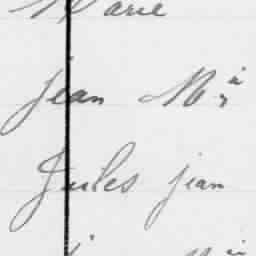 Marie
jean M
Jules jean